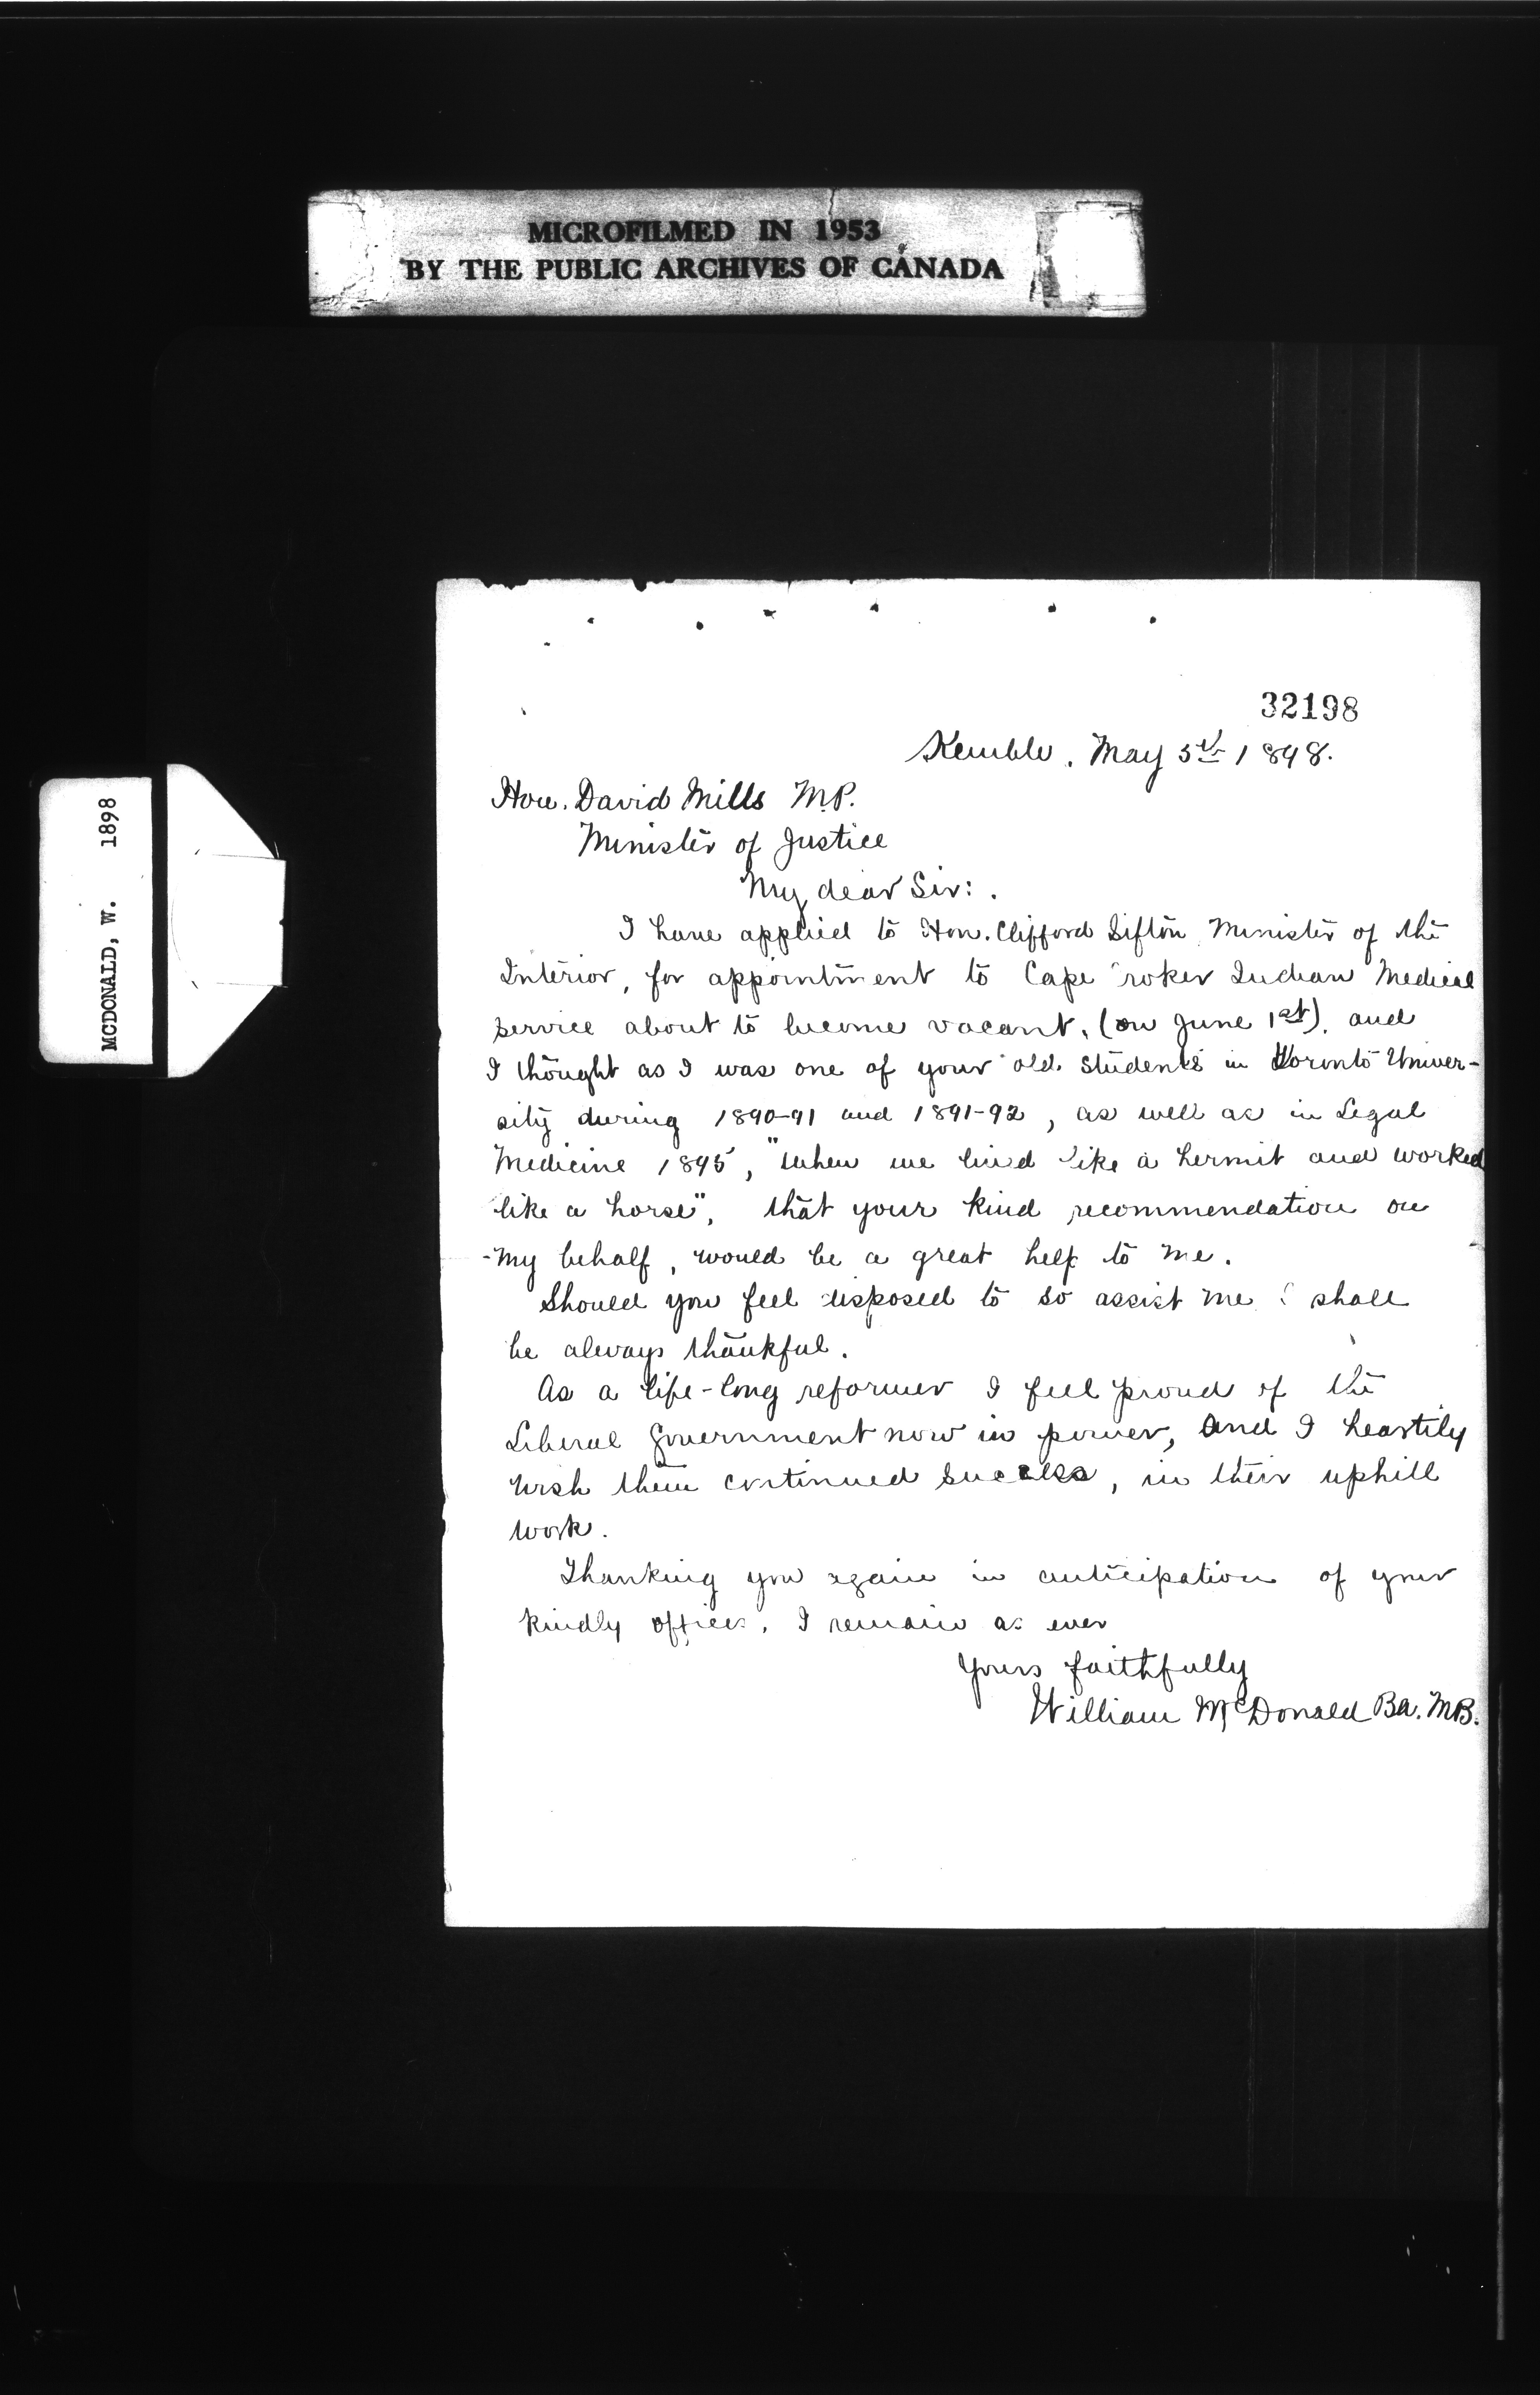 MICROFILMED IN 1953
BY THE PUBLIC ARCHIVES OF CANADA
MCDONALD, W. 1898
32198
Kemble, May 5th 1898.
Hon. David Mills M.P.
Minister of Justice
My dear Sir:.
I have applied to Hon. Clifford Sifton Minister of the
Interior, for appointment to Cape Croker Indian Medical
Service about to become vacant, (on June 1st), and
I thought as I was one of your old students in Toronto Univer-
sity during 1890-91 and 1891-92, as well as in Legal
Medicine 1895, "when we lived like a hermit and worked
like a horse", that your kind recommendation on
my behalf, would be a great help to me.
Should you feel disposed to so assist me I shall
be always thankful.
As a life-long reformer I feel proud of the
Liberal Government now in power, and I heartily
wish them continued success, in their uphill
work.
Thanking you again in anticipation of your
kindly offices, I remain as ever
Yours faithfully
William McDonald Ba. MB.